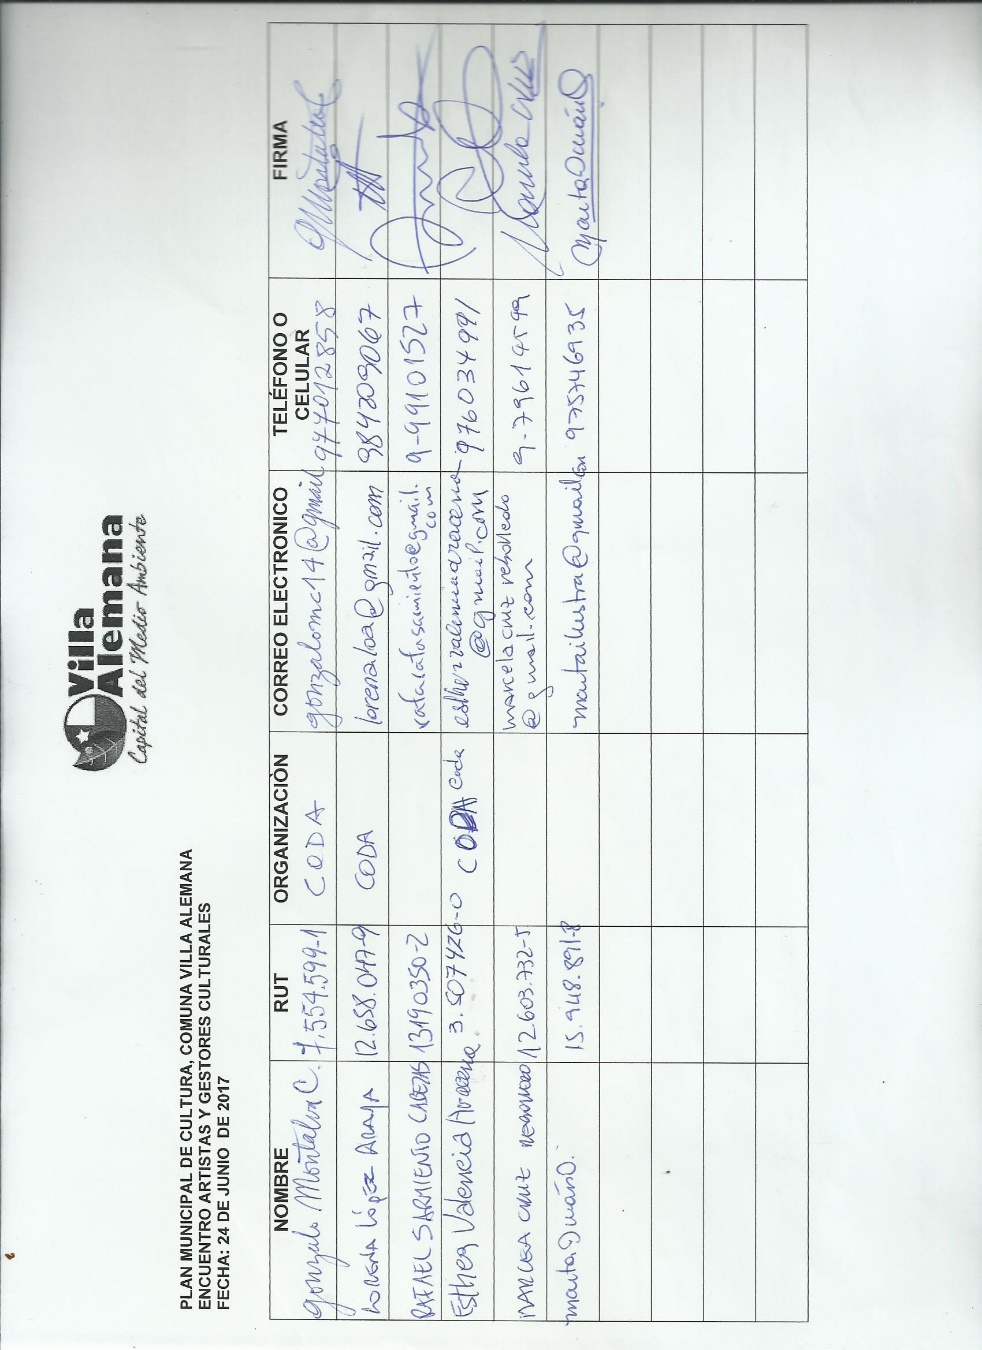 Villa
Alemana
Capital del Medio Ambiente
PLAN MUNICIPAL DE CULTURA, COMUNA VILLA ALEMANA
ENCUENTRO ARTISTAS Y GESTORES CULTURALES
FECHA: 24 DE JUNIO DE 2017
NOMBRE RUT ORGANIZACIÒN CORREO ELECTRONICO TELÉFONO O CELULAR FIRMA
Gonzalo Montalva C. 7.554.599-1 CODA gonzalomc14@gmail 977012858
Lorena López Araya 12.658.047-9 CODA lorenaloa@gmail.com 984209067
RAFAEL SARMIENTO CABEZAS 13190350-2 9-99101527
Esther Valencia Aracena 3.507426-0 CODA Coda esthervalenciaaracena@gmail.com 976034991
MARCELA CRUZ REBOLLEDO 12.603.732-5 marcelacruz rebolledo@gmail.com 9-79614599 Marcela Cruz
15.948.891-8 martailustra@gmail.com 975746935